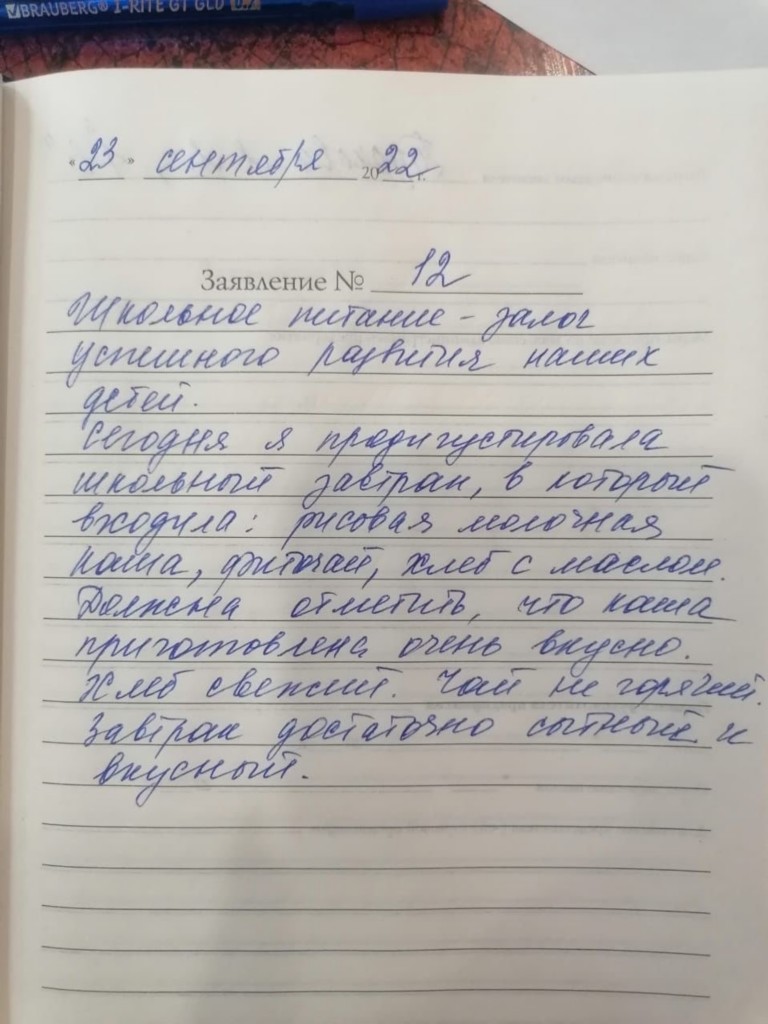 BRAUBERG® I-RITE GT GLD 0.7
« 23 » сентября 2022 г.
Заявление № 12
Школьное питание - залог
успешного развития наших
детей.
Сегодня я продигустировала
школьный завтрак, в который
входила: рисовая молочная
каша, фиточай, хлеб с маслом.
Должна отметить, что каша
приготовлена очень вкусно.
Хлеб свежий. Чай не горячий.
Завтрак достаточно сытный и
вкусный.